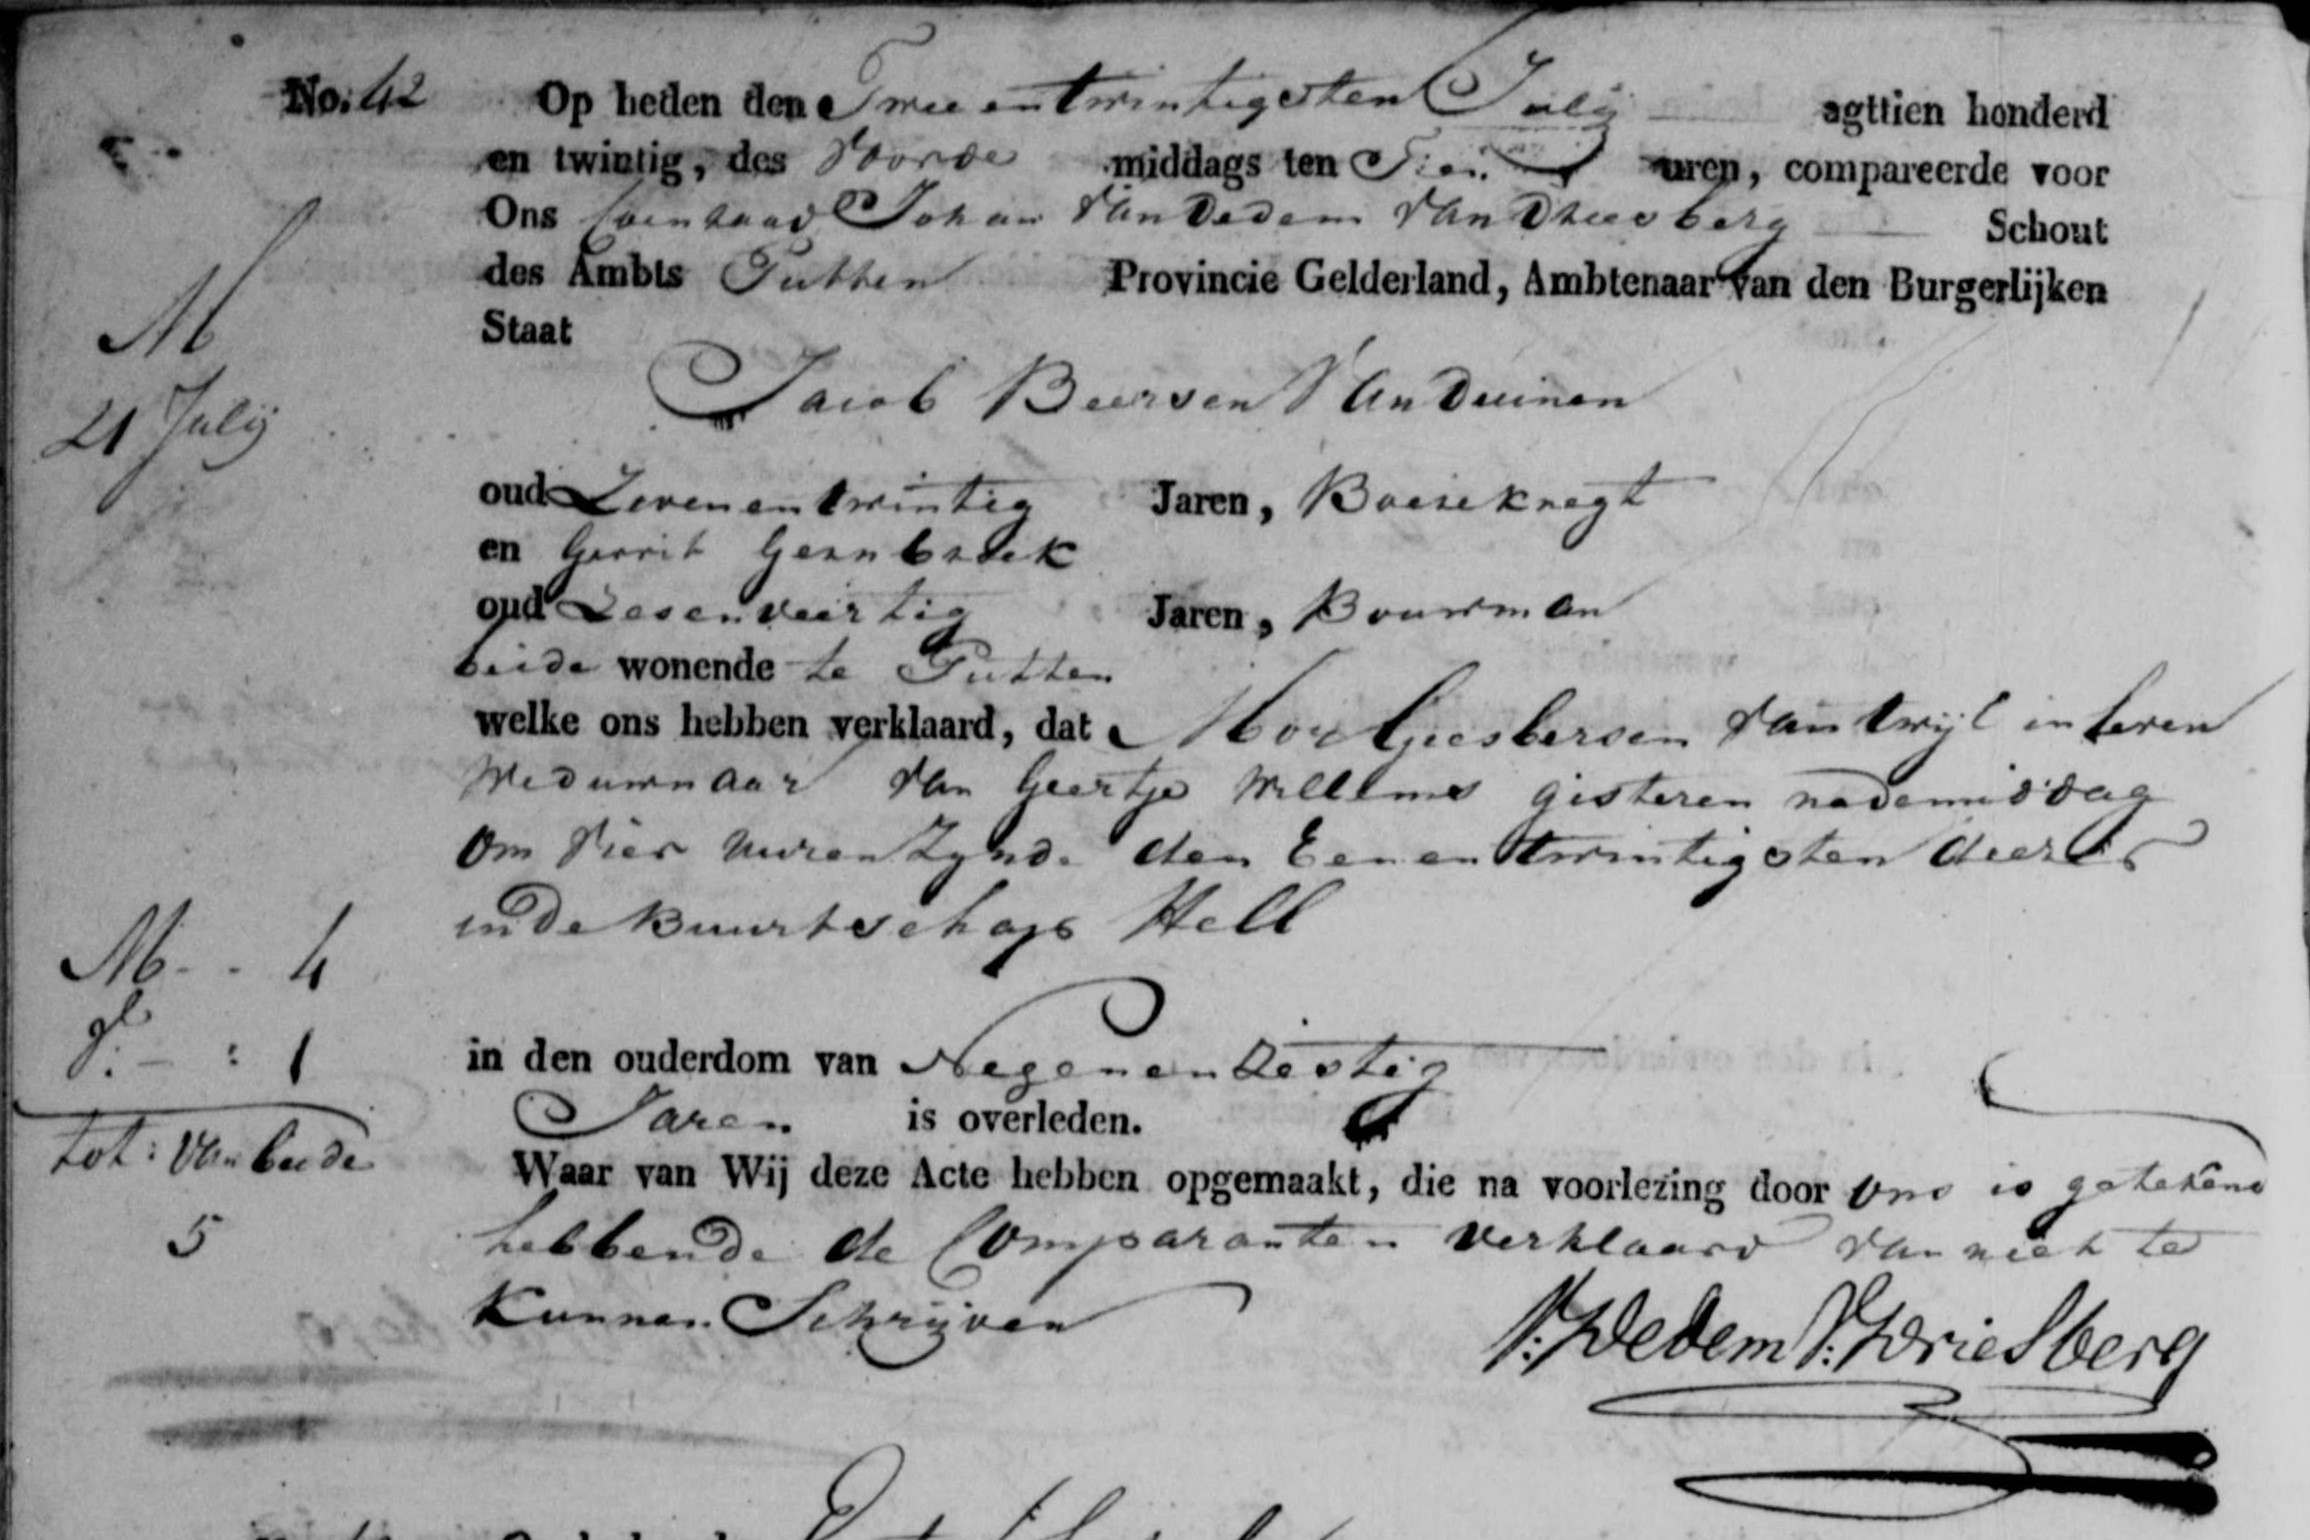 No. 42 Op heden den Twee en twintigsten Julij agttien honderd
en twintig, des Voorde middags ten Tien uren, compareerde voor
Ons Coenraad Johan Van Dedem Van Driesberg Schout
des Ambts Putten Provincie Gelderland, Ambtenaar van den Burgerlijken
Staat
M
21 Julij
Jacob Beersen Van Duinen
oud Zeven en twintig Jaren, Boereknegt
en Gerrit
oud Zes en veertig Jaren, Bouwman
beide wonende te Putten
welke ons hebben verklaard, dat Giesbersen Van twijl in leven
Weduwnaar van Geertje Willems gisteren nademiddag
om Vier uuren zynde den Een en twintigsten deezer
in de Buurtschap Hell
M - - 4
1
tot: Van beide
5
in den ouderdom van Negen en Zestig
Jaren is overleden.
Waar van Wij deze Acte hebben opgemaakt, die na voorlezing door ons is getekend
hebbende de Comparanten verklaard van niet te
Kunnen Schrijven
V: Dedem V: Driesberg